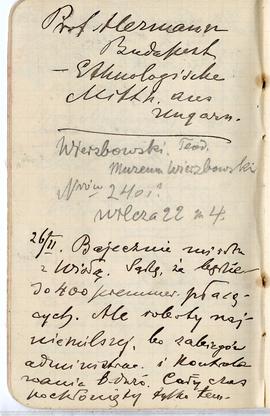 Prof Hermann
Budapest
– Ethnologische
Mitth. aus
Ungarn.
Wierzbowski. Teod.
Muzeum Wierzbowski
240
wilcza 22 m 4.
26/II. Bajecznie
z Wisłą. Sądzę, że będzie
do 400 prenumer. płacą-
cych. Ale roboty naj-
niemilszej, bo zabiegów
administrac. i kontrolo-
wania B-dzo. Cały czas
pochłonięty tylko tem.